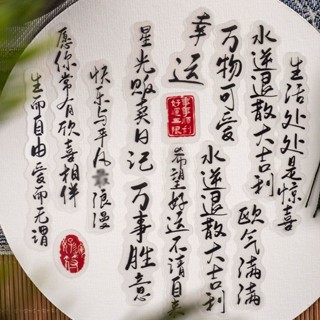 生活处处是惊喜
水逆退散大吉利
欧气满满
万物可爱
水逆退散大吉利
幸运
事事顺利
好运无限
希望好运不请自来
星光贩卖日记
万事胜意
快乐与平凡浪漫
愿你常有欣喜相伴
生而自由爱而无谓